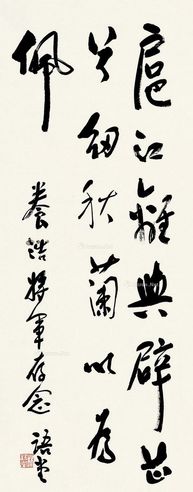 扈江離與辟芷
兮紉秋蘭以為
佩
養誥將軍存念
語堂